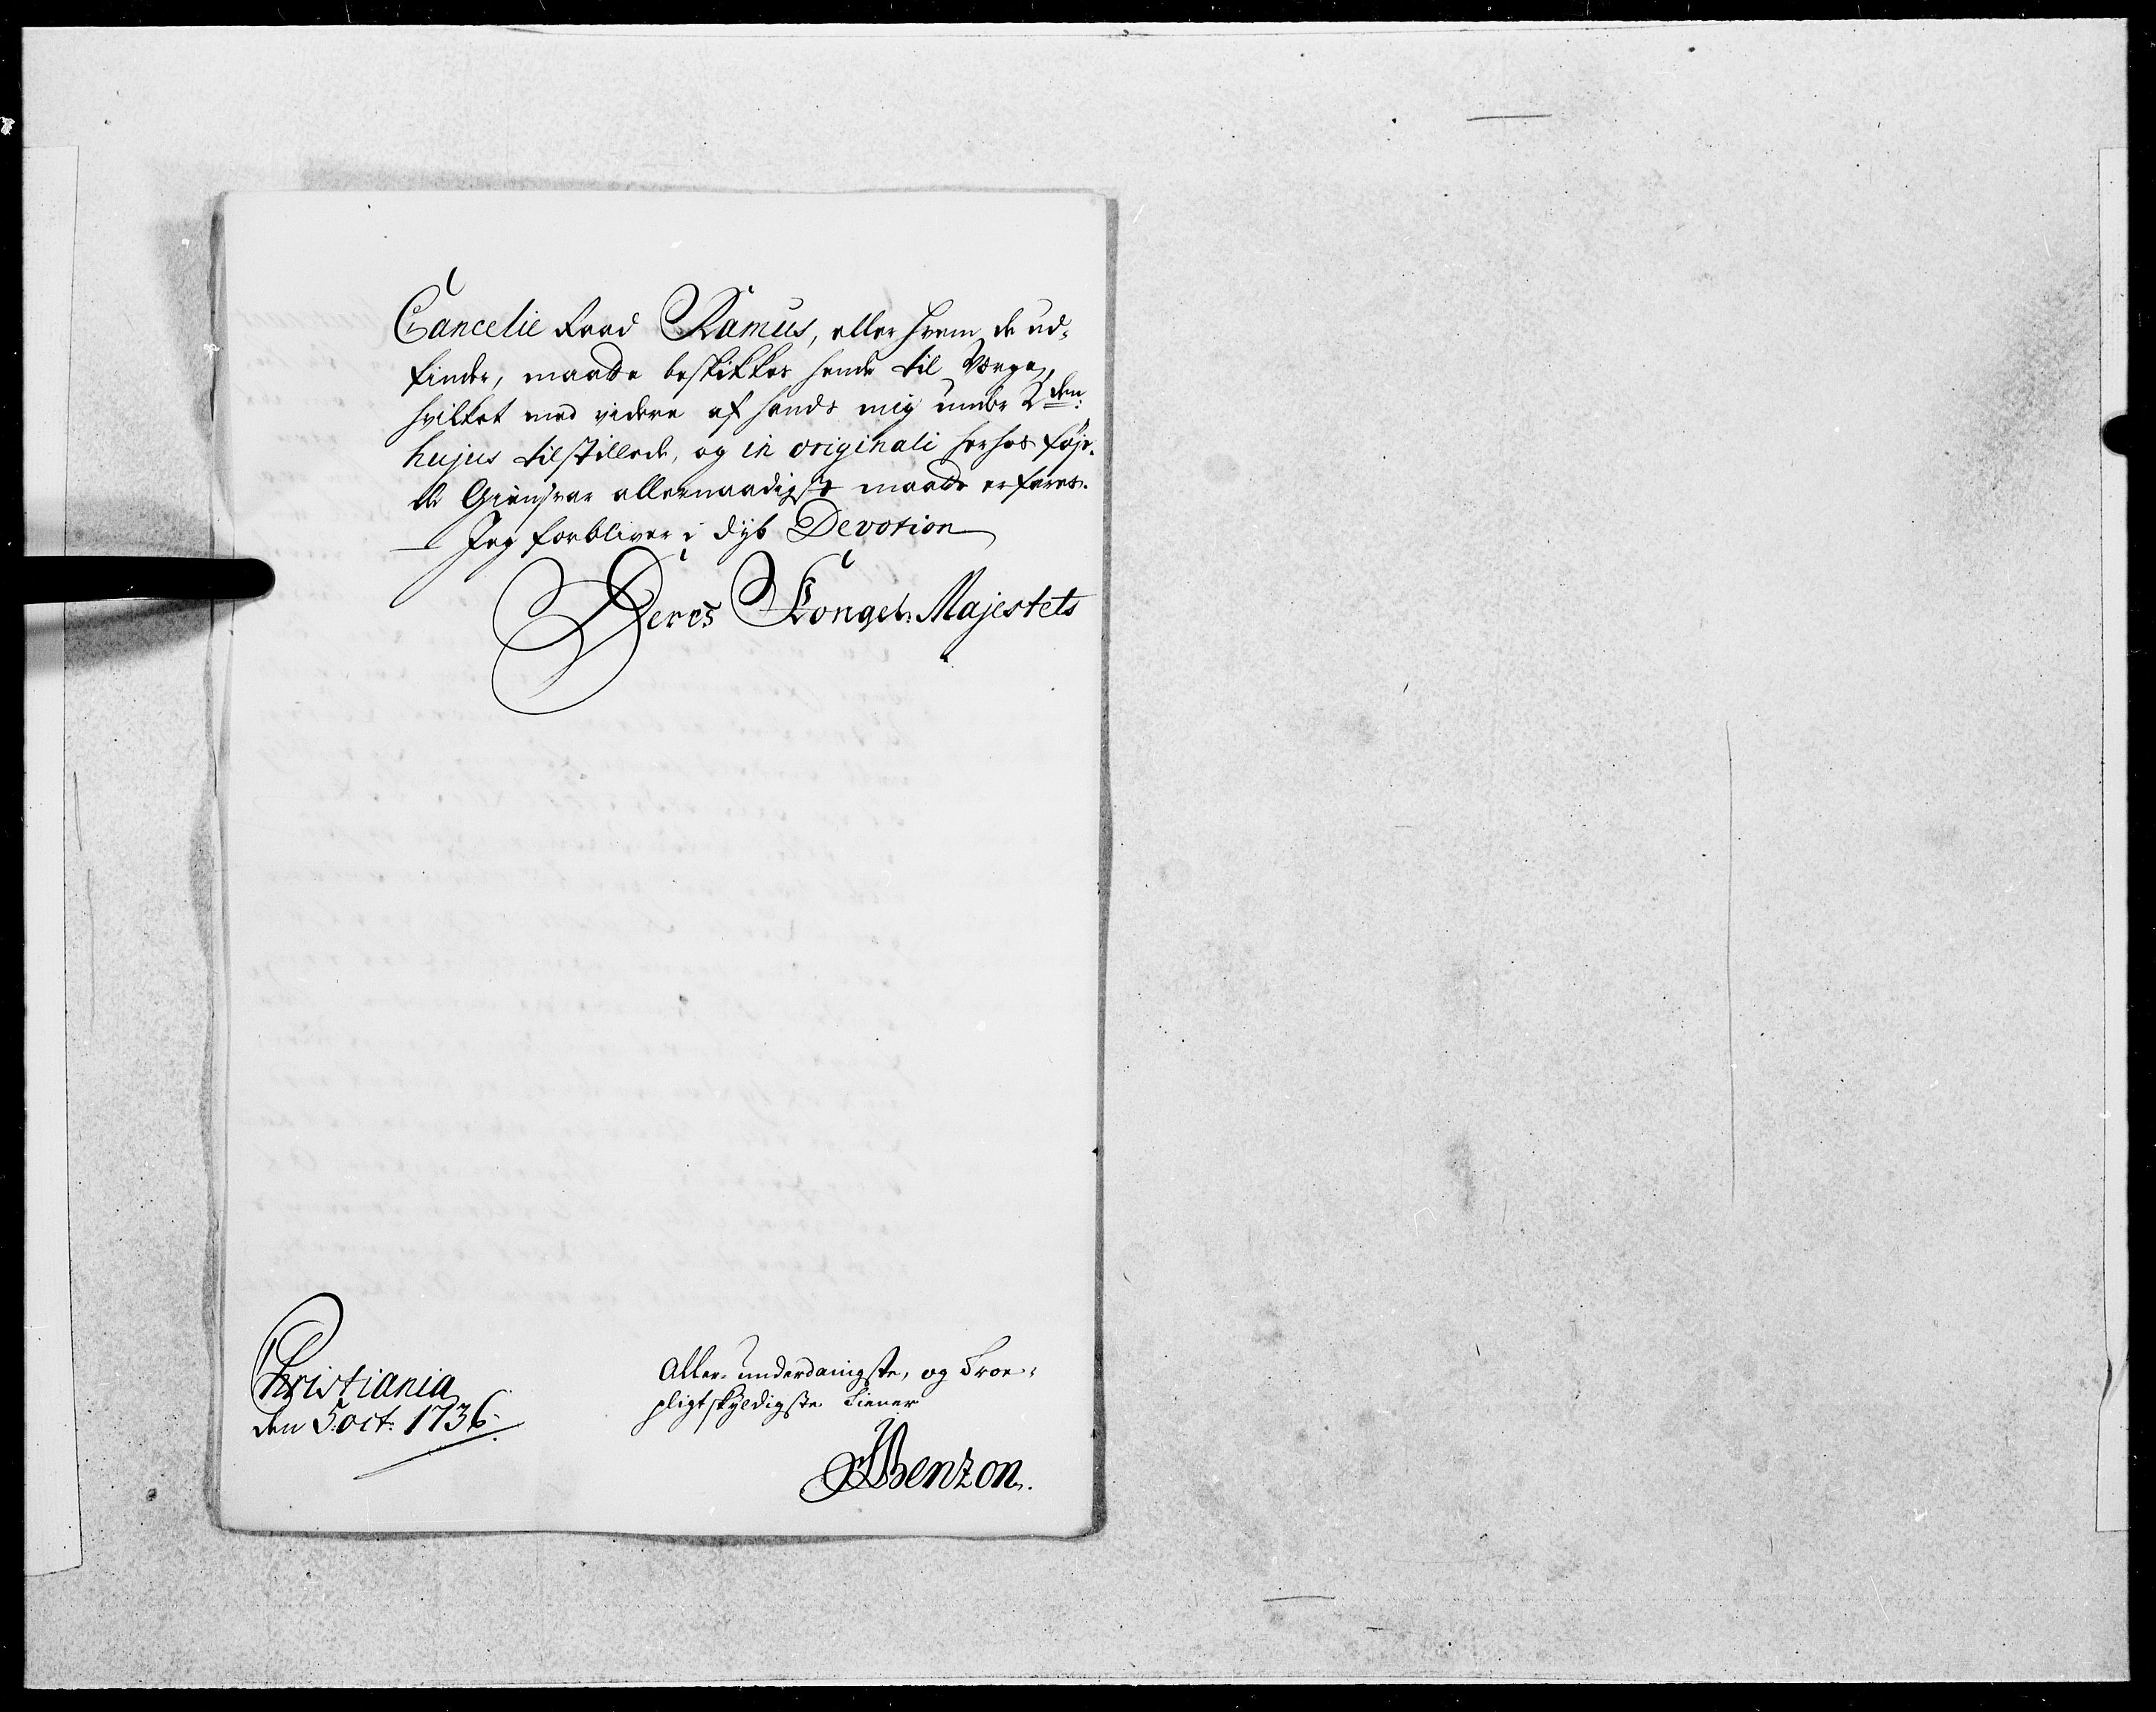 Cancelie Raad Ramus, eller hvem de ud-
finder, maatte beskikkes hende til Verge,
hvilket med videre af hands mig under 2den:
hujus tilstillede, og in originali herhos føje-
de Giensvar allernaadigst maatte erfares.
Jeg forbliver i dyb Devotion
Deres Kongel: Majestets
Christiania
den 5: oct: 1736.
Aller-underdanigste, og Troe-
pligtskyldigste Tiener
Benzon.